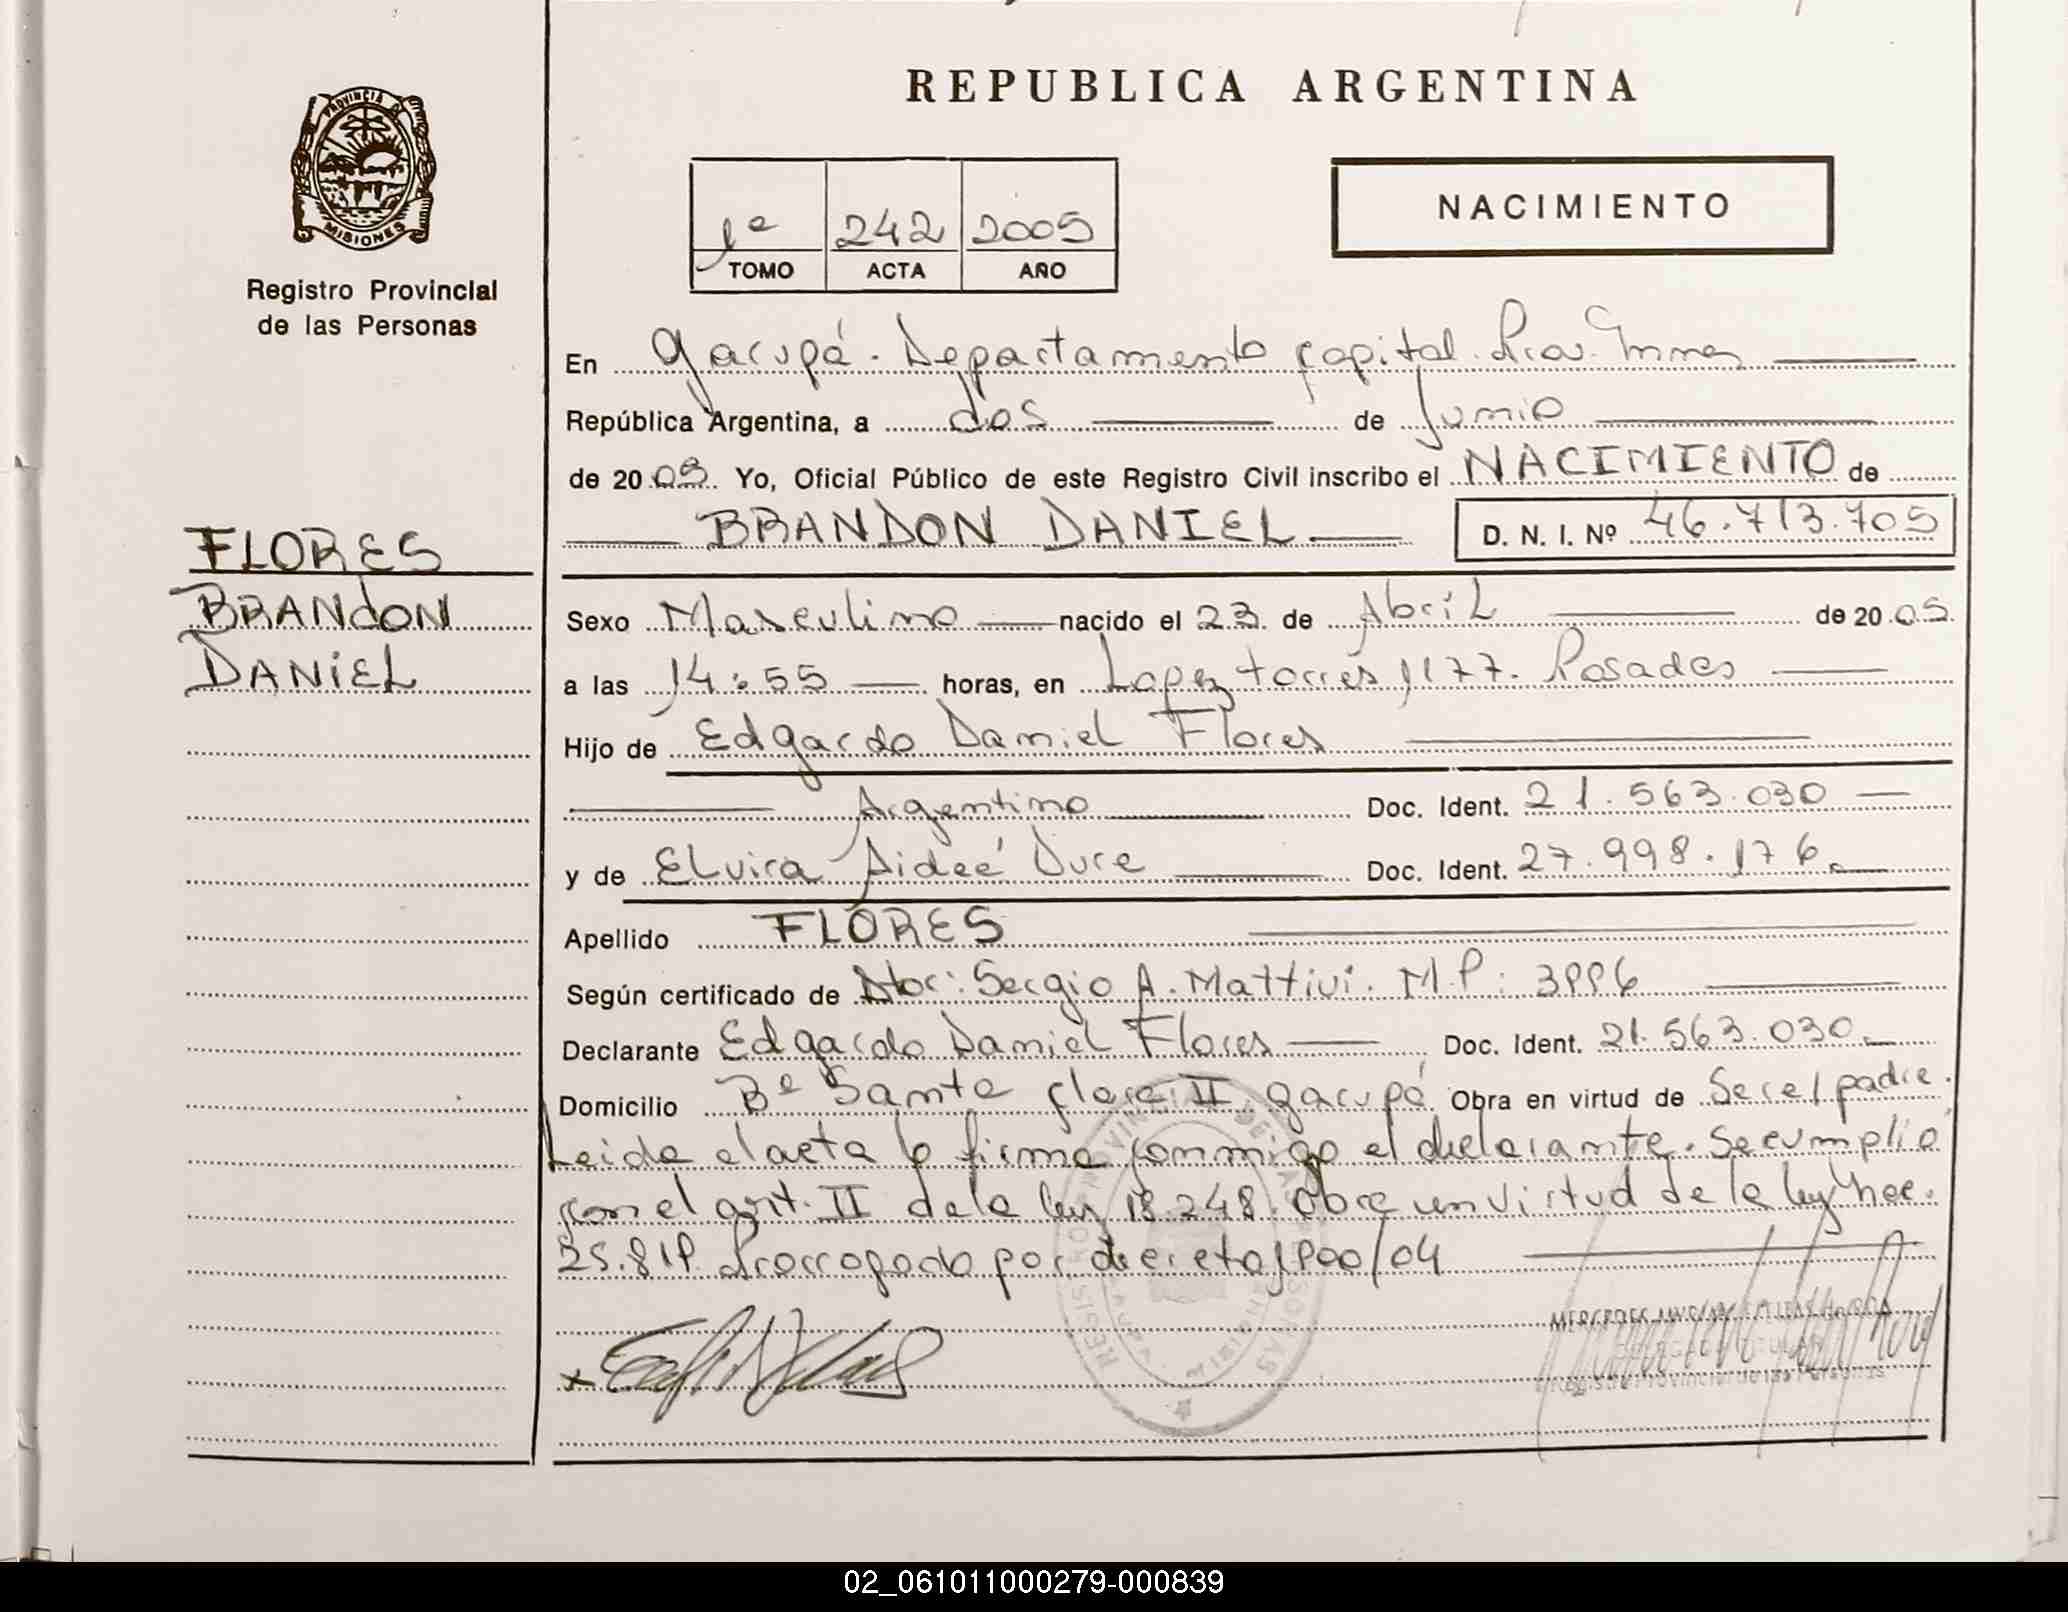 PROVINCIA DE
MISIONES
Registro Provincial
de las Personas
FLORES
BRANDON
DANIEL
REPUBLICA ARGENTINA
1º 242 2005
TOMO ACTA AÑO
NACIMIENTO
En Garupá. Departamento Capital. Prov. Mnes
República Argentina, a dos de Junio
de 2005. Yo, Oficial Público de este Registro Civil inscribo el NACIMIENTO de
BRANDON DANIEL D. N. I. Nº 46.713.705
Sexo Masculino nacido el 23 de Abril de 2005.
a las 14:55 horas, en Lopez torres 1177. Posadas
Hijo de Edgardo Daniel Flores
Argentino Doc. Ident. 21.563.030
y de Elvira Aideé Dure Doc. Ident. 27.998.176.
Apellido FLORES
Según certificado de Sergio A. Mattivi. M.P: 3996
Declarante Edgardo Daniel Flores Doc. Ident. 21.563.030.
Domicilio Bº Santa Clara II Garupá Obra en virtud de Ser el padre.
Leida el acta la firma conmigo el declarante. Se cumplió
con el art. II de la ley 18.248. Obra en virtud de la ley
25.819. Prorrogado por decreto 1900/04
Registro Provincial de las Personas
02_061011000279-000839